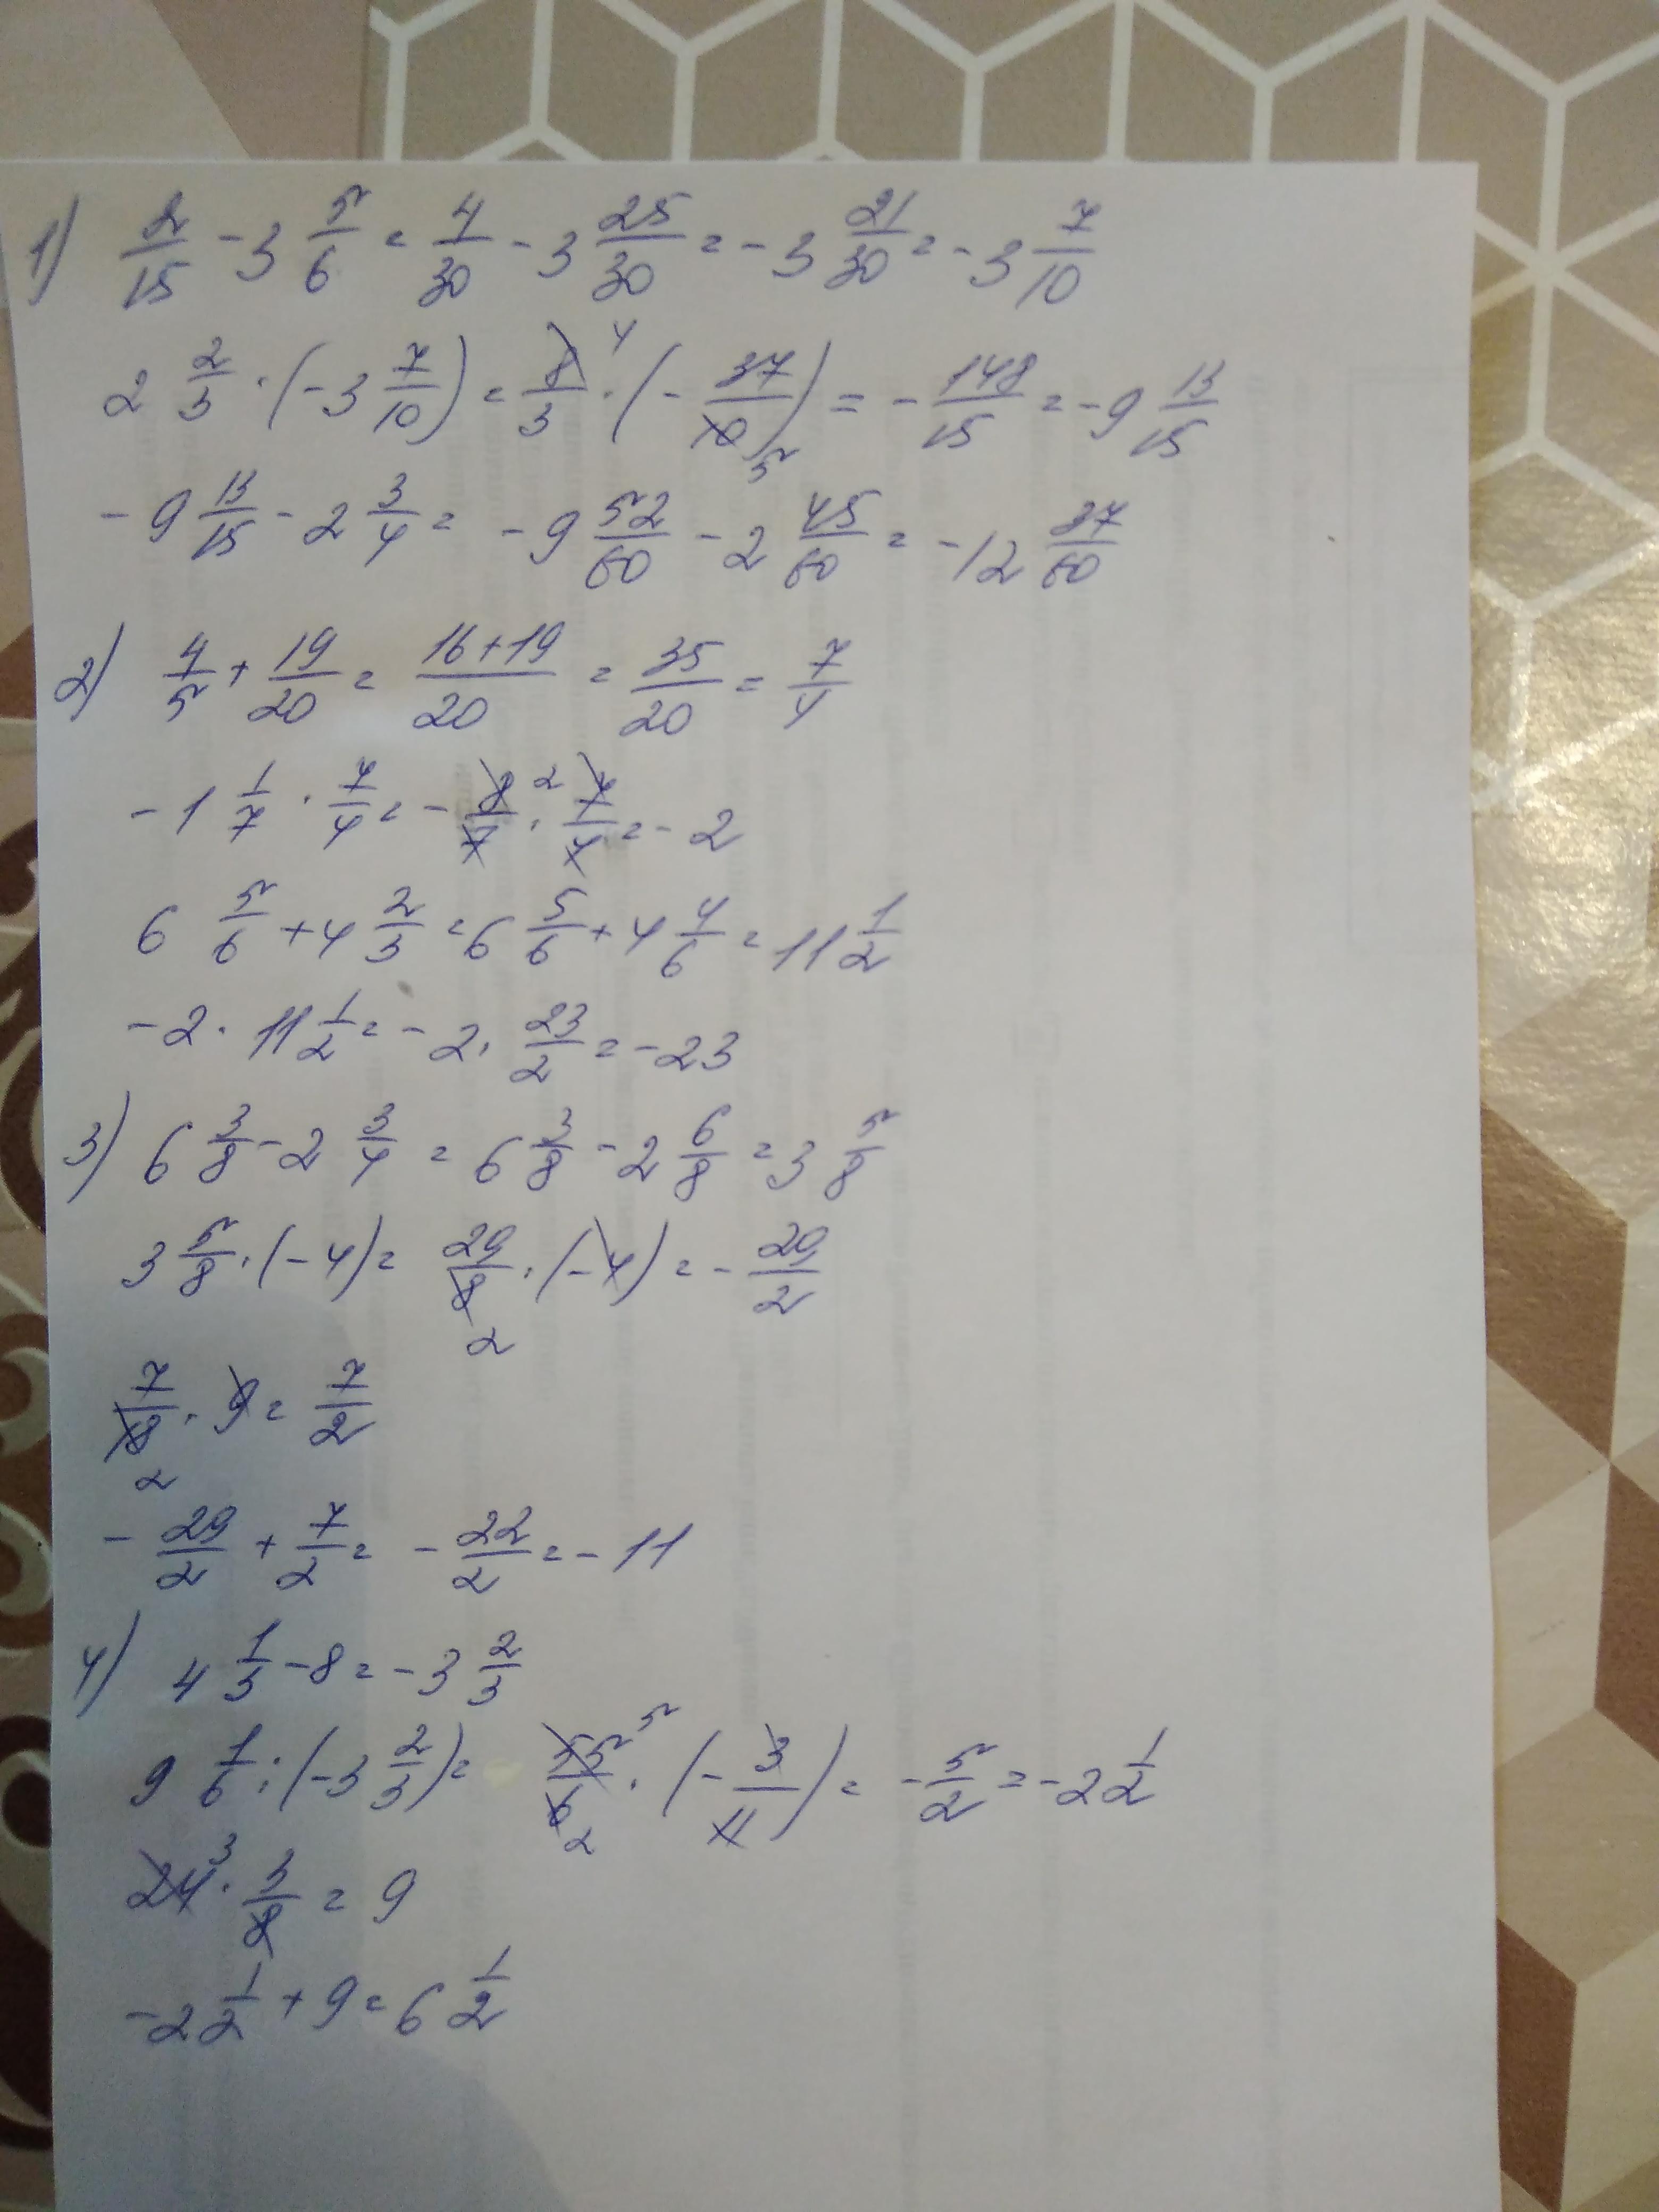 1) 2/15 - 3 5/6 = 4/30 - 3 25/30 = -3 21/30 = -3 7/10
2 2/3 · (-3 7/10) = 8/3 4 · (- 37/10 5) = - 148/15 = -9 13/15
-9 13/15 - 2 3/4 = -9 52/60 - 2 45/60 = -12 37/60
2) 4/5 + 19/20 = 16+19/20 = 35/20 = 7/4
-1 1/7 · 7/4 = - 8/7 2 · 7/4 = -2
6 5/6 + 4 2/3 = 6 5/6 + 4 4/6 = 11 1/2
-2 · 11 1/2 = -2 · 23/2 = -23
3) 6 3/8 - 2 3/4 = 6 3/8 - 2 6/8 = 3 5/8
3 5/8 · (-4) = 29/8 2 · (-4) = - 29/2
7/18 2 · 9 = 7/2
- 29/2 + 7/2 = - 22/2 = -11
4) 4 1/3 - 8 = -3 2/3
9 1/6 : (-3 2/3) = 55 5/6 2 · (- 3/11) = - 5/2 = -2 1/2
24 3 · 3/8 = 9
-2 1/2 + 9 = 6 1/2